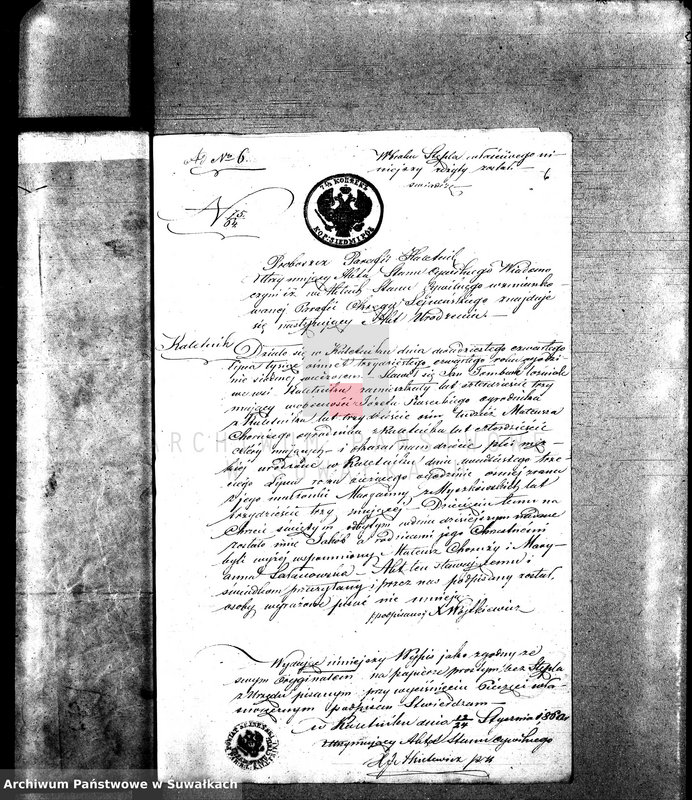 Ad No 6.
W braku Stępla właściwego ni-
niejszy użyty został.
6
7½ KOPIEK
KOP: SIEDM I PÓŁ
N 15/64
Proboszcz Parafii Kaletnik
Utrzymujący Akta Stanu Cywilnego Wiadomo
czyni iż na Stanu Cywilnego wzmianko-
wanej Parafii Okręgu Sejneńskiego znajduje
się następujący Akt Urodzenia
Kaletnik
Działo się w Kaletniku dnia dwudziestego czwartego
Lipca tysiąc ośmset trzydziestego czwartego roku o godzi-
nie siódmej wieczorem. Stawił się Jan
we wsi Kaletniku zamieszkały lat czterdzieście trzy
mający w obecności Józefa ogrodnika
z Kaletnika lat trzydzieście ośm tudzież Mateusza
Chomżego ogrodnika z Kaletnika lat czterdzieście
mających i okazał nam dziecię płci mę-
kiej urodzone w Kaletniku dnia dwudziestego trze-
ciego Lipca roku bieżącego o godzinie ósmej zrana
z jego małżonki Maryanny z Myszkowskich lat
trzydzieście trzy mającej Dziecięciu temu na
Chrzcie świętym odbytym w dniu dzisiejszym nadane
zostało imię Jakób a rodzicami jego Chrzestnemi
byli wyżej wspomniony Mateusz Chomży i Mary-
anna Akt ten stawającemu i
świadkom przeczytany i przez nas podpisany został,
osoby wyrażone pisać nie umieją
podpisano X. Wojtkiewicz
Wydając niniejszy Wypis jako zgodny ze
swym Oryginałem na papierze prostym bez Stępla
z Urzędu pisanym przy wyciśnieniu Pieczęci
podpisem Stwierdzam
w Kaletniku dnia 12/24 Stycznia 1864 r
Utrzymujący Akta Stanu Cywilnego
Archiwum Państwowe w Suwałkach